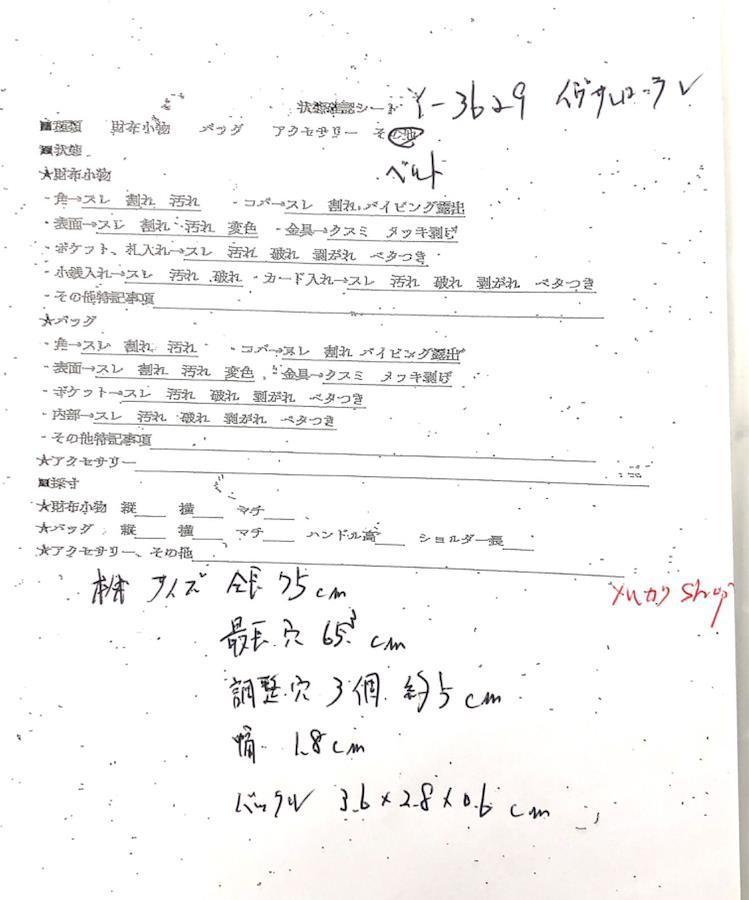 状態確認シート Y-3629 イヴサンローラン
■種類 財布小物 バッグ アクセサリー その他
■状態 ベルト
★財布小物
・角→スレ 割れ 汚れ ・コバ→スレ 割れ パイピング露出
・表面→スレ 割れ 汚れ 変色 ・金具→クスミ メッキ剥げ
・ポケット、札入れ→スレ 汚れ 破れ 剥がれ ベタつき
・小銭入れ→スレ 汚れ 破れ ・カード入れ→スレ 汚れ 破れ 剥がれ ベタつき
・その他特記事項
★バッグ
・角→スレ 割れ 汚れ ・コバ→スレ 割れ パイピング露出
・表面→スレ 割れ 汚れ 変色 ・金具→クスミ メッキ剥げ
・ポケット→スレ 汚れ 破れ 剥がれ ベタつき
・内部→スレ 汚れ 破れ 剥がれ ベタつき
・その他特記事項
★アクセサリー
■採寸
★財布小物 縦 横 マチ
★バッグ 縦 横 マチ ハンドル高 ショルダー長
★アクセサリー、その他
本体 サイズ 全長 75cm
メルカリ Shop
最長穴 65 cm
調整穴 3個 約5cm
幅 1.8cm
バックル 3.6×2.8×0.6cm